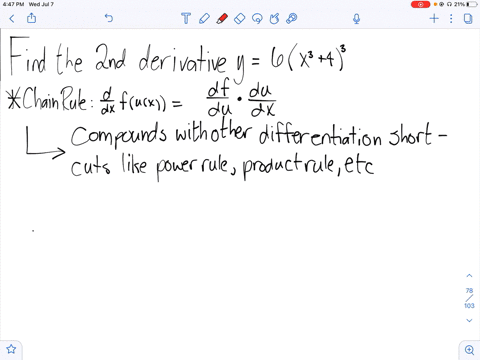 4:47 PM Wed Jul 7
21%
Find the 2nd derivative y = 6(x³+4)³
*Chain Rule: d/dx f(u(x)) = df/du · du/dx
Compounds with other differentiation short-
cuts like power rule, product rule, etc
78
/
103